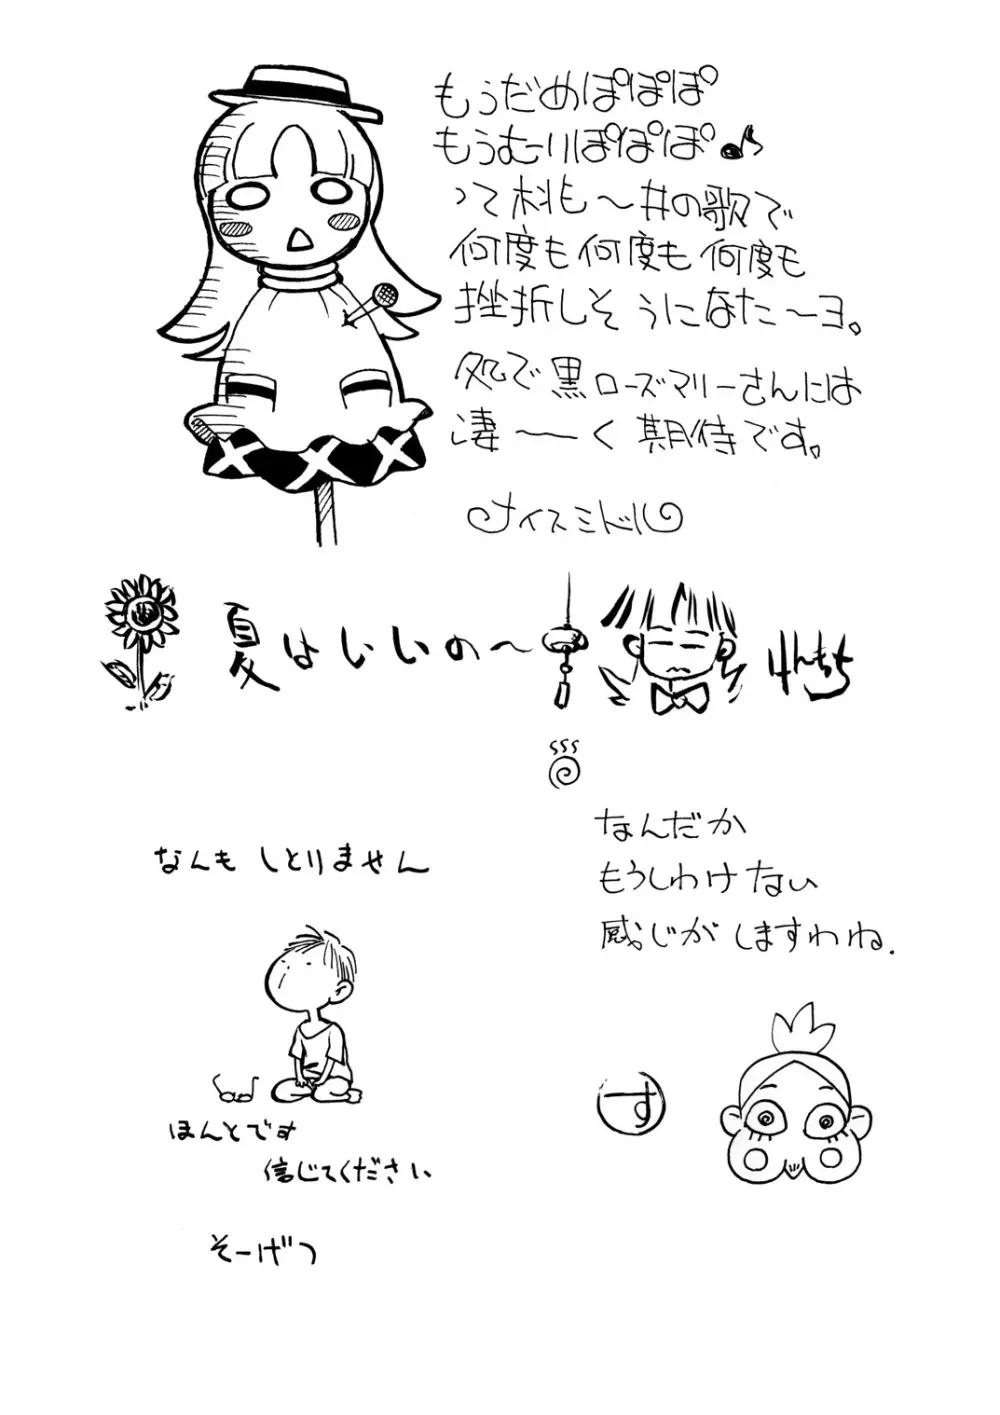 もうだめぽぽぽ
もうむ〜りぽぽぽ♪
って桃も〜井の歌で
何度も何度も何度も
挫折しそうになた〜ヨ。
処で黒ローズマリーさんには
凄〜く期待です。
ナイスミドル
夏はいいの〜
けんもち
なんだか
もうしわけない
感じがしますわね.
なんも しとりません
す
ほんとです
信じてください
そーげつ